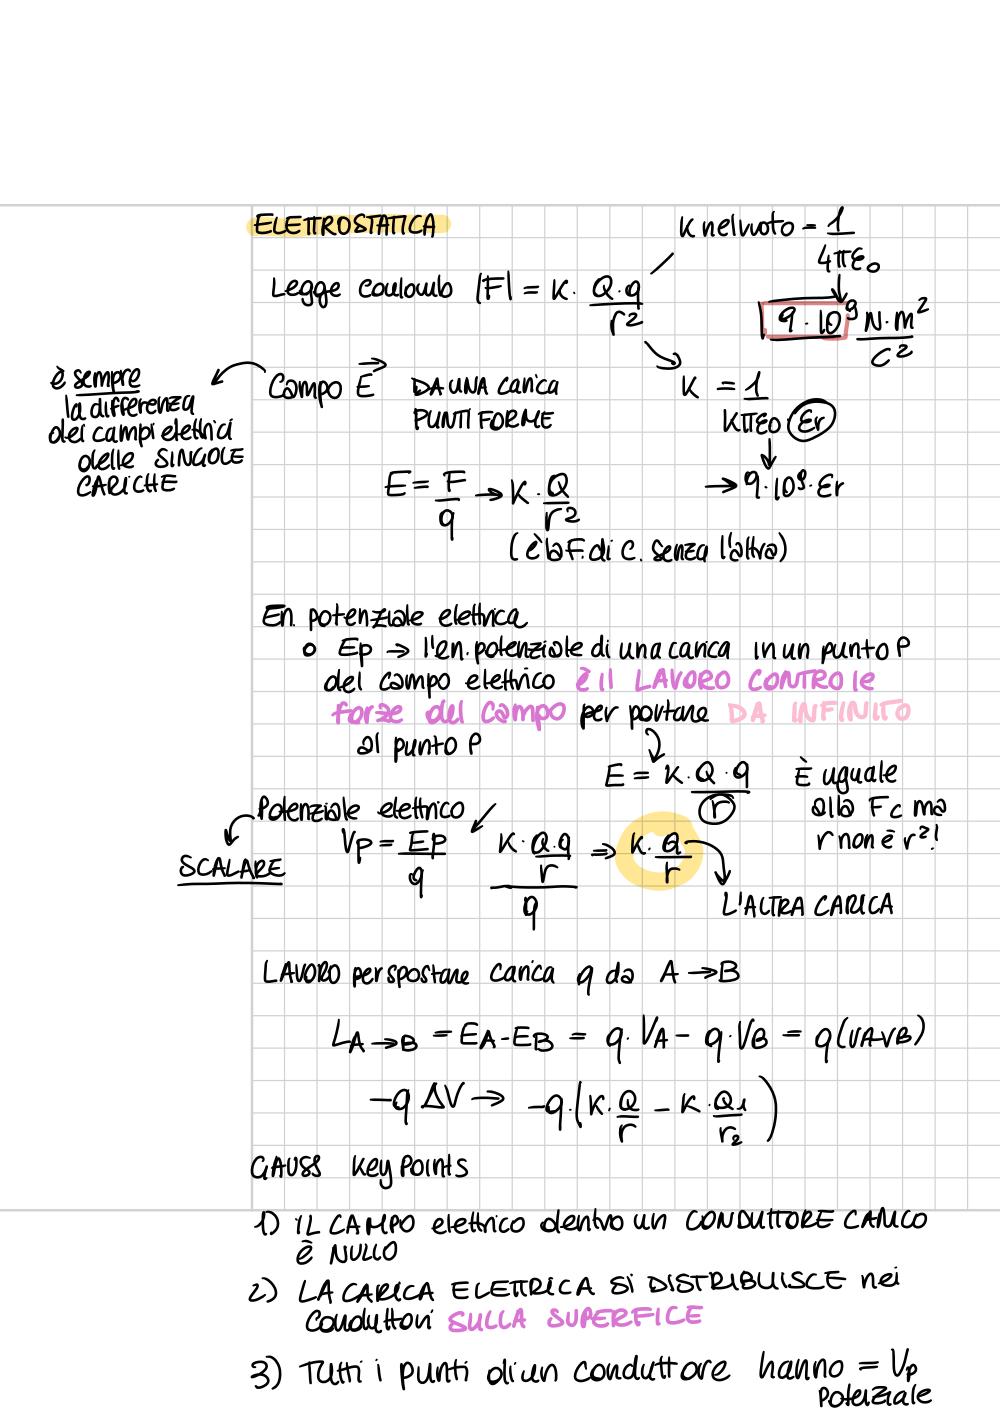 ELETTROSTATICA
K nel vuoto = 1
4πε₀
Legge Couloub |F| = K · Q·q
r²
9·10⁹ N·m²
C²
Campo E⃗ DA UNA carica
PUNTIFORME
K = 1
Kπε₀ εr
→ 9·10⁹·εr
è sempre
la differenza
dei campi elettrici
delle SINGOLE
CARICHE
E = F → K · Q
q r²
(è la F. di C. senza l'altra)
En. potenziale elettrica
o Ep → l'en. potenziale di una carica in un punto P
del campo elettrico è il LAVORO CONTRO le
forze del campo per portare DA INFINITO
al punto P
E = K·Q·q
r
È uguale
alla Fc ma
r non è r²!
Potenziale elettrico
SCALARE
Vp = Ep K·Q·q ⇒ K·Q
q r r
q
L'ALTRA CARICA
LAVORO per spostare carica q da A → B
LA→B = EA-EB = q·VA - q·VB = q(VA-VB)
-q ΔV → -q·(K·Q - K·Q₁)
r r₂
GAUSS Key Points
1) IL CAMPO elettrico dentro un CONDUTTORE CARICO
è NULLO
2) LA CARICA ELETTRICA SI DISTRIBUISCE nei
Conduttori SULLA SUPERFICE
3) Tutti i punti di un conduttore hanno = Vp
Potenziale